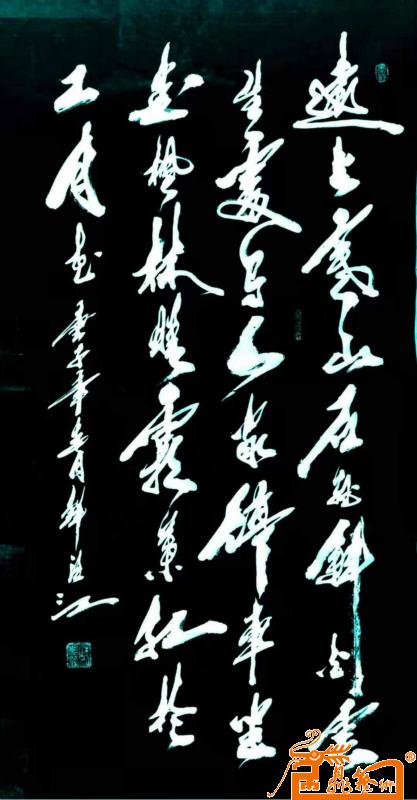 遠上寒山石徑斜白雲
生處有人家停車坐
愛楓林晚霜葉紅於
二月花 庚子年 月 江